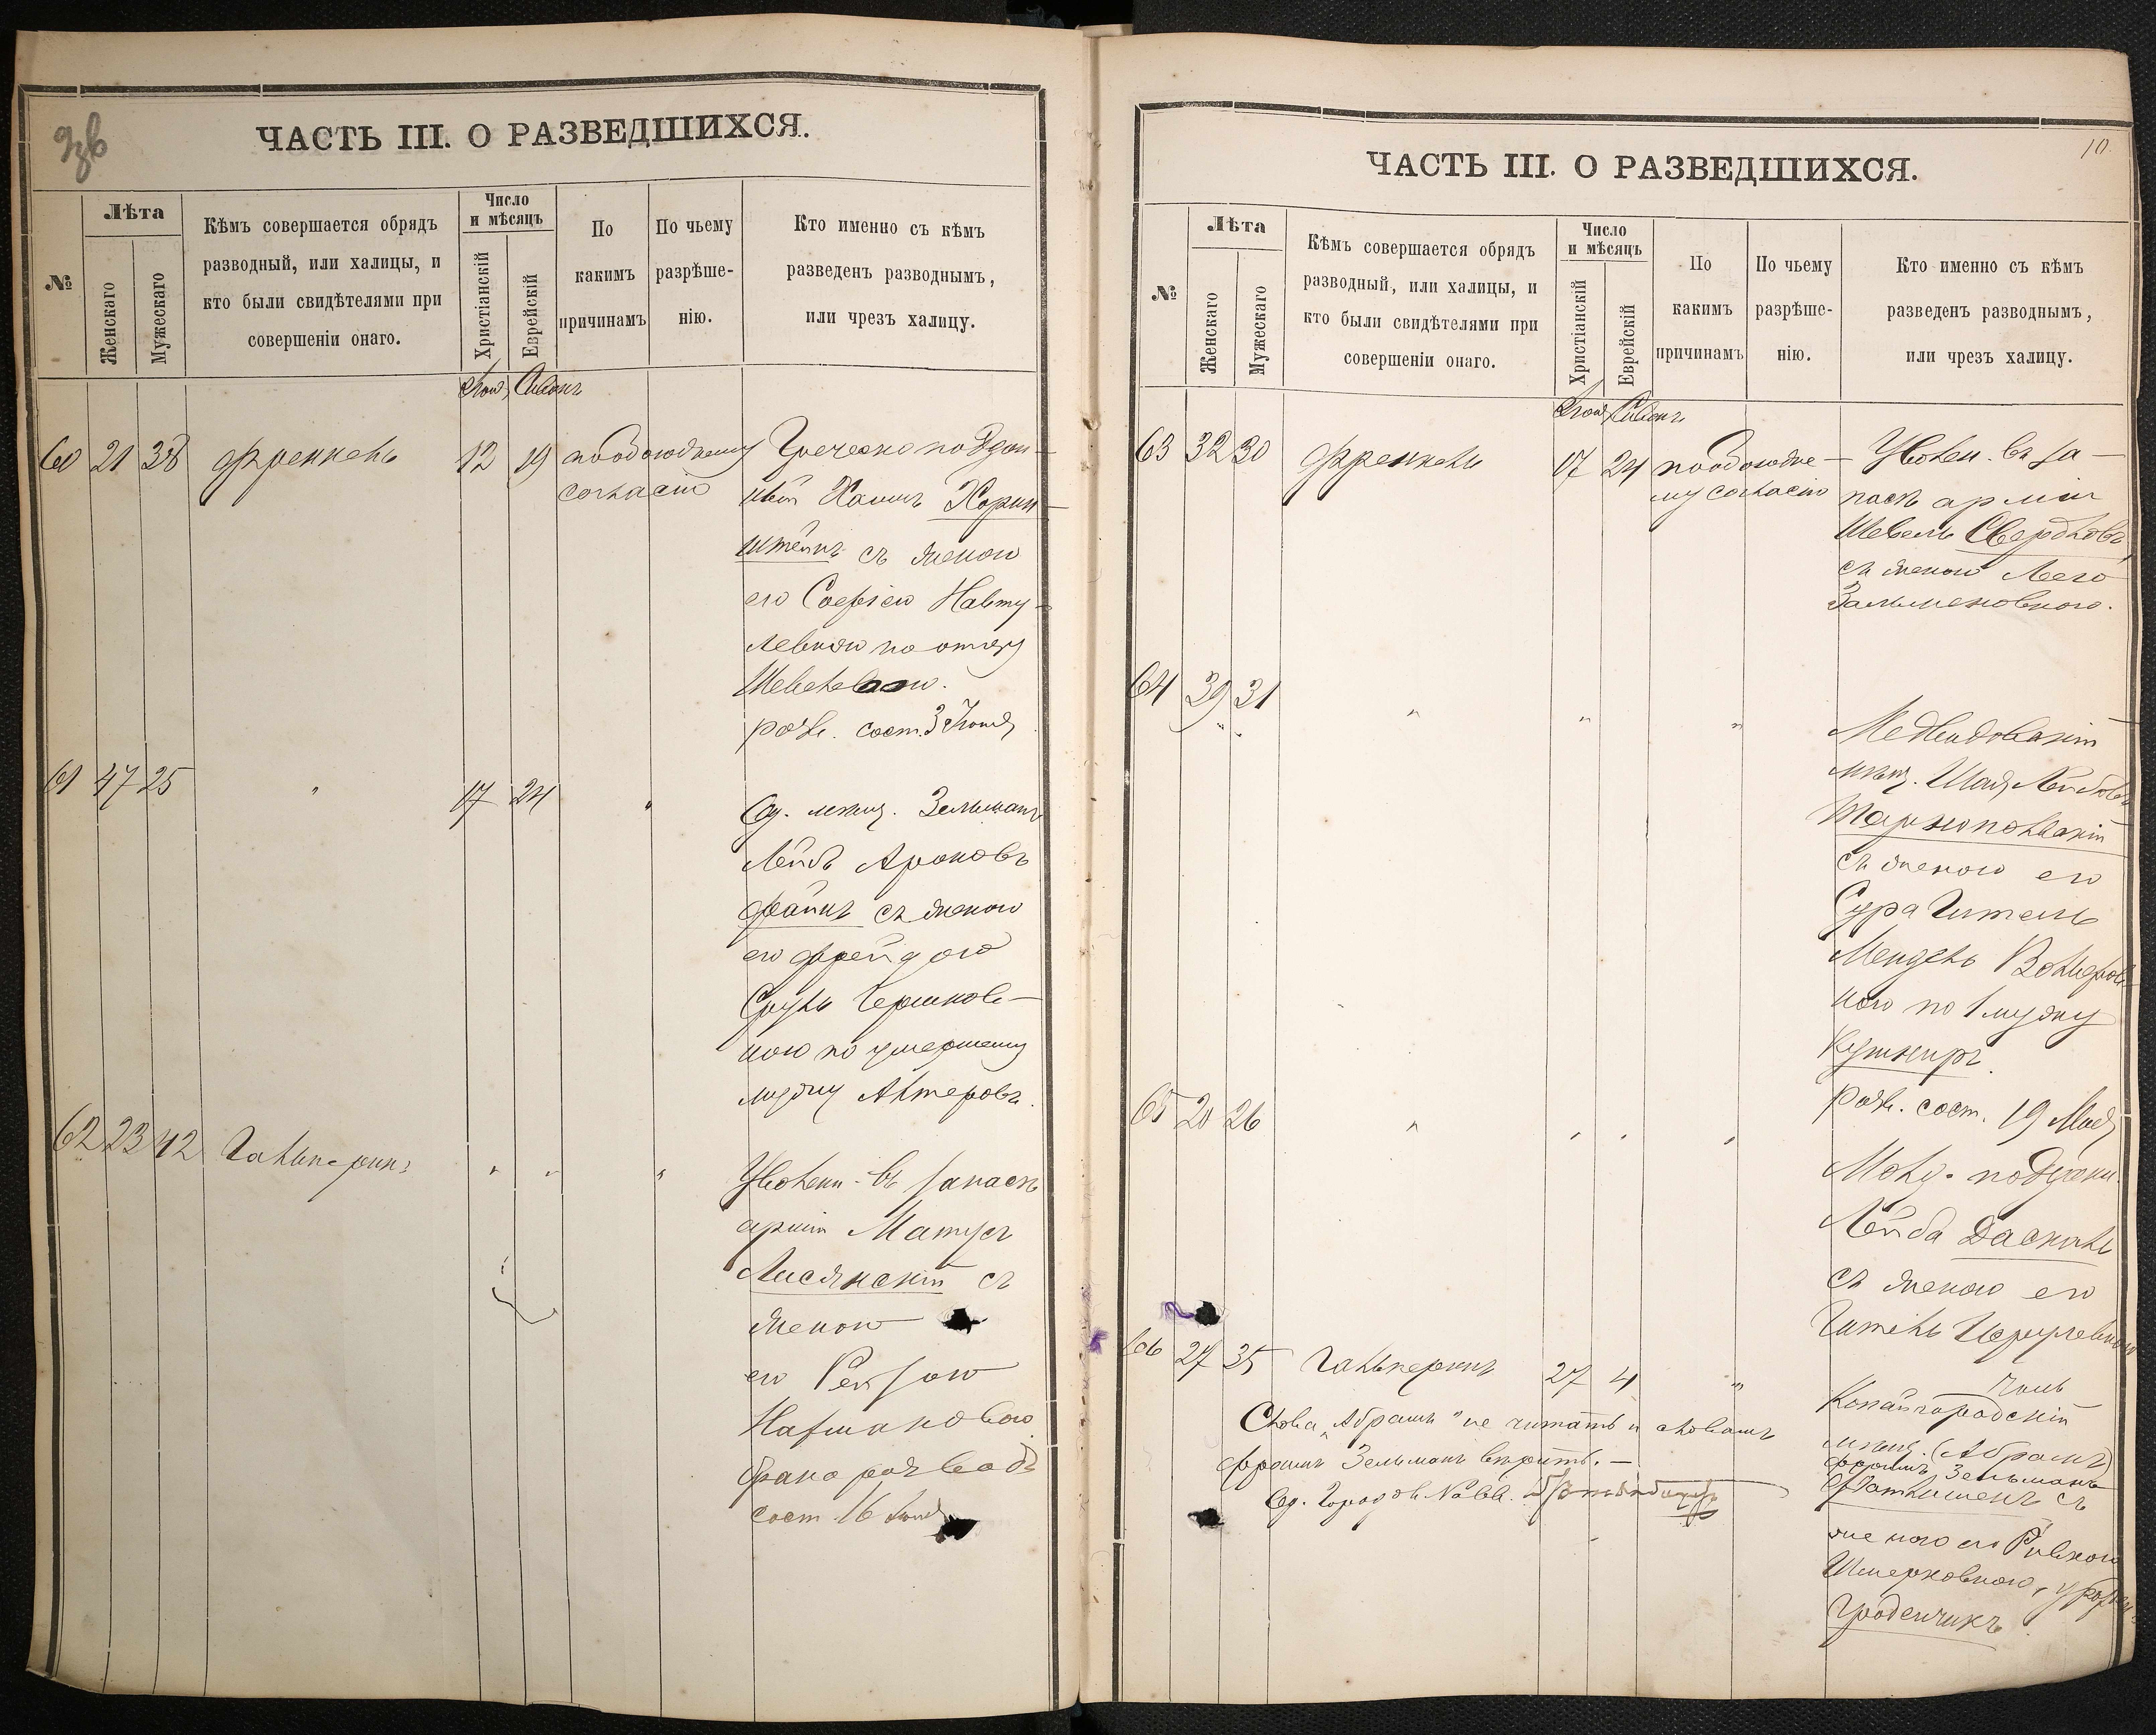 ЧАСТЬ III. О РАЗВЕДШИХСЯ.
№
Лѣта
Женскаго
Мужескаго
Кѣмъ совершается обрядъ
разводный, или халицы, и
кто были свидѣтелями при
совершеніи онаго.
Число
и мѣсяцъ
Христіанскій
Еврейскій
По
какимъ
причинамъ
По чьему
разрѣше-
нію.
Кто именно съ кѣмъ
разведенъ разводнымъ,
или чрезъ халицу.
Іюня Сивонъ
60 21 38 Френкель 12 19 по обоюдному
согласію
Греческо поддан-
ный Хаимъ Хорин-
штейнъ съ женою
его Софіею Навту-
левною по отцу
разв. сост. 3 Іюня
61 47 25 " 17 24 "
Од. мѣщ. Зельманъ
Лейбъ Ароновъ
Файнъ съ женою
его Фрейдою
Сруль Гершков-
ною по умершему
мужу Актеровъ.
62 23 42 Гальперинъ " " "
Уволен. въ запасъ
арміи Матусъ
Лисянскій съ
женою
его Рейзою
Нахмановою
брака разводъ
сост. 16 Іюня
ЧАСТЬ III. О РАЗВЕДШИХСЯ.
10.
№
Лѣта
Женскаго
Мужескаго
Кѣмъ совершается обрядъ
разводный, или халицы, и
кто были свидѣтелями при
совершеніи онаго.
Число
и мѣсяцъ
Христіанскій
Еврейскій
По
какимъ
причинамъ
По чьему
разрѣше-
нію.
Кто именно съ кѣмъ
разведенъ разводнымъ,
или чрезъ халицу.
Іюня Сивонъ
63 32 30 Френкель 17 24 по обоюдно-
му согласію
Уволен. въ за-
пасъ арміи
Шевель Свердловъ
съ женою Леею
Зальмановною.
64 39 31 " " "
Меджибовскій
мѣщ. Шая Лейбовъ
Тарнопольскій
съ женою его
Сура Гитель
Мендель Вольфов-
ною по 1 мужу
Кушниръ.
разв. сост. 19 Мая
65 20 26 " " " "
Молд. поддан.
Лейба Даскаль
съ женою его
Гитель
66 27 35 Гальперинъ 27 4 "
Копайгородскій
мѣщ. (Абрамъ)
Фроимъ Зельманъ
съ
женою его Ривкою
Шмерковною, урожден.
Гроденчикъ.
Слова „Абрамъ" не читать и словамъ
Фроимъ Зельманъ вѣрить. —
Од. Город. Равв.